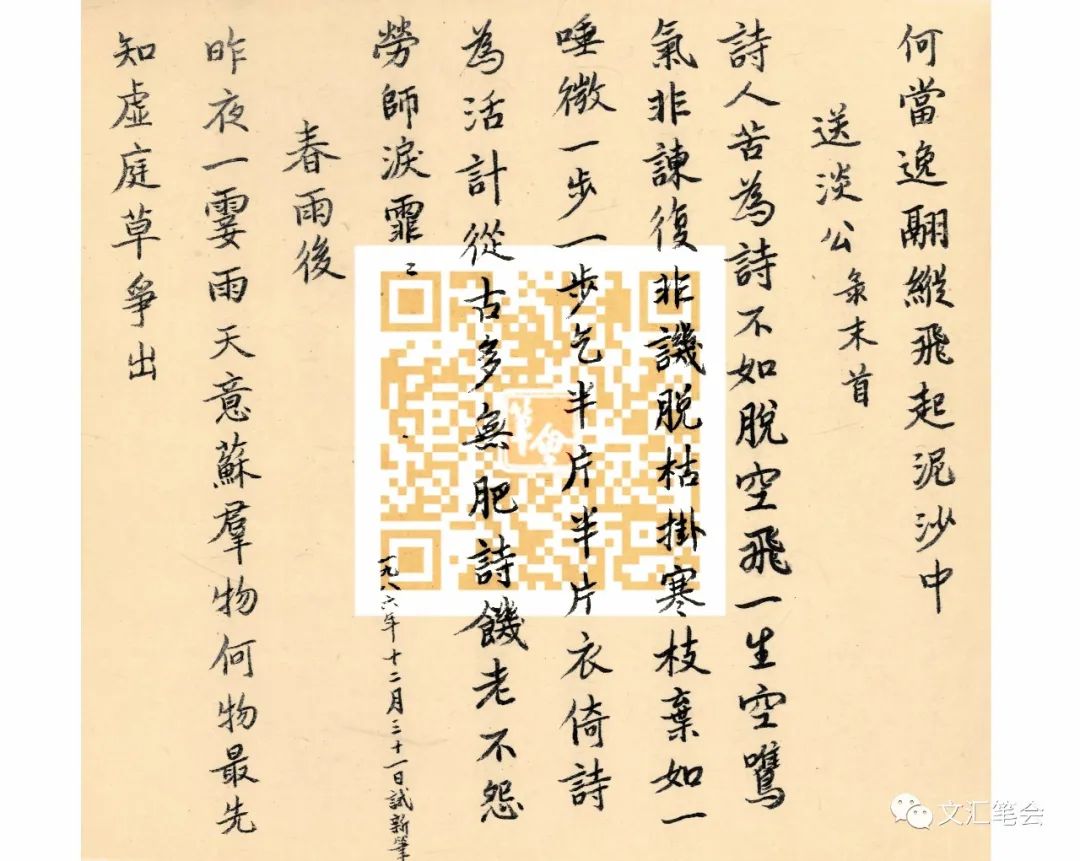 何當逸翮縱飛起泥沙中
送淡公 彔末首
詩人苦為詩不如脫空飛一生空鷕
氣非諫復非譏脫枯掛寒枝棄如一
唾微一步一步乞半片半片衣倚詩
為活計從古多無肥詩饑老不怨
勞師淚霏〻
一九八六年十二月三十一日試新筆
春雨後
昨夜一霎雨天意蘇羣物何物最先
知虛庭草爭出
笔会
文汇笔会